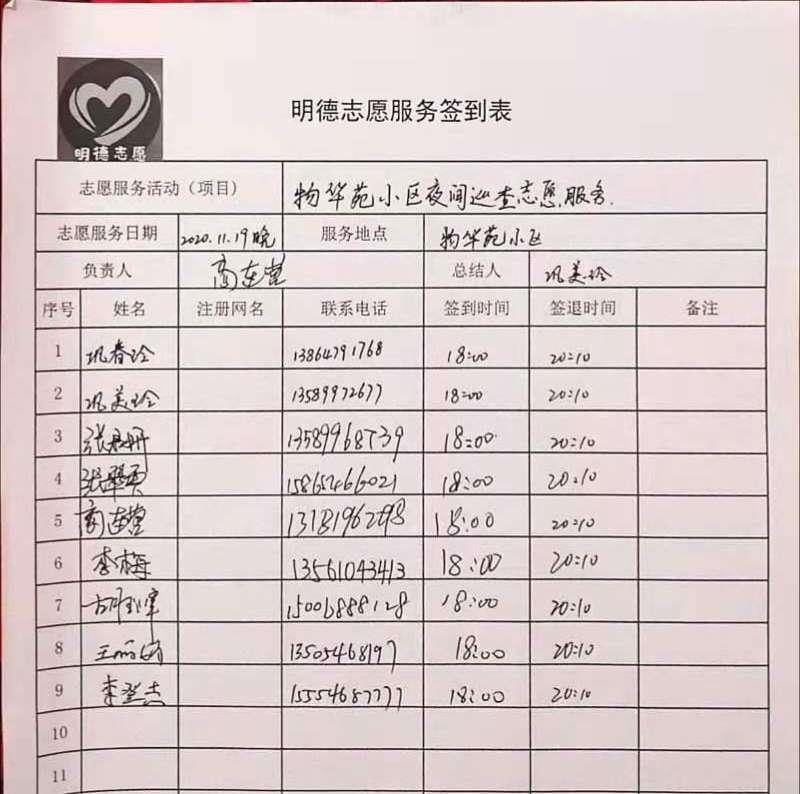 明德志愿
明德志愿服务签到表
志愿服务活动（项目） 物华苑小区夜间巡查志愿服务.
志愿服务日期 2020.11.19晚 服务地点 物华苑小区
负责人 高连堂 总结人 巩美玲
序号 姓名 注册网名 联系电话 签到时间 签退时间 备注
1 巩春玲 13864791768 18:00 20:10
2 巩美玲 13589972677 18:00 20:10
3 13589968739 18:00 20:10
4 15865466021 18:00 20:10
5 高连堂 13181962898 18:00 20:10
6 李梅 13561043413 18:00 20:10
7 15006888128 18:00 20:10
8 13505468197 18:00 20:10
9 李登杰 15554687777 18:00 20:10
10
11